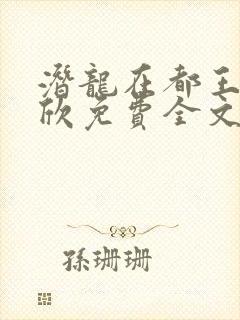 潛龍在都王
欣免費全文
孫珊珊